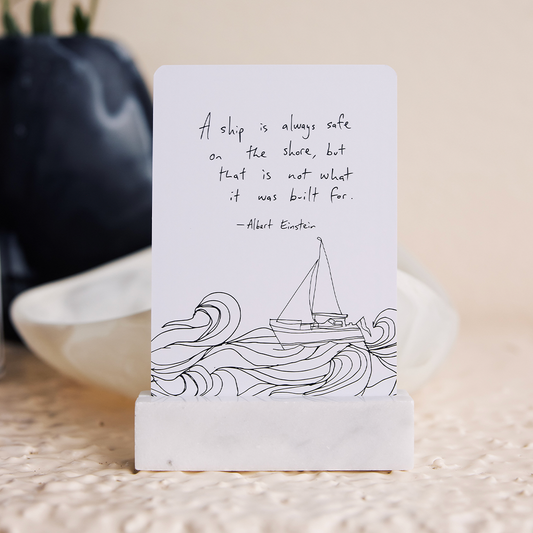 A ship is always safe
on the shore, but
that is not what
it was built for.
—Albert Einstein